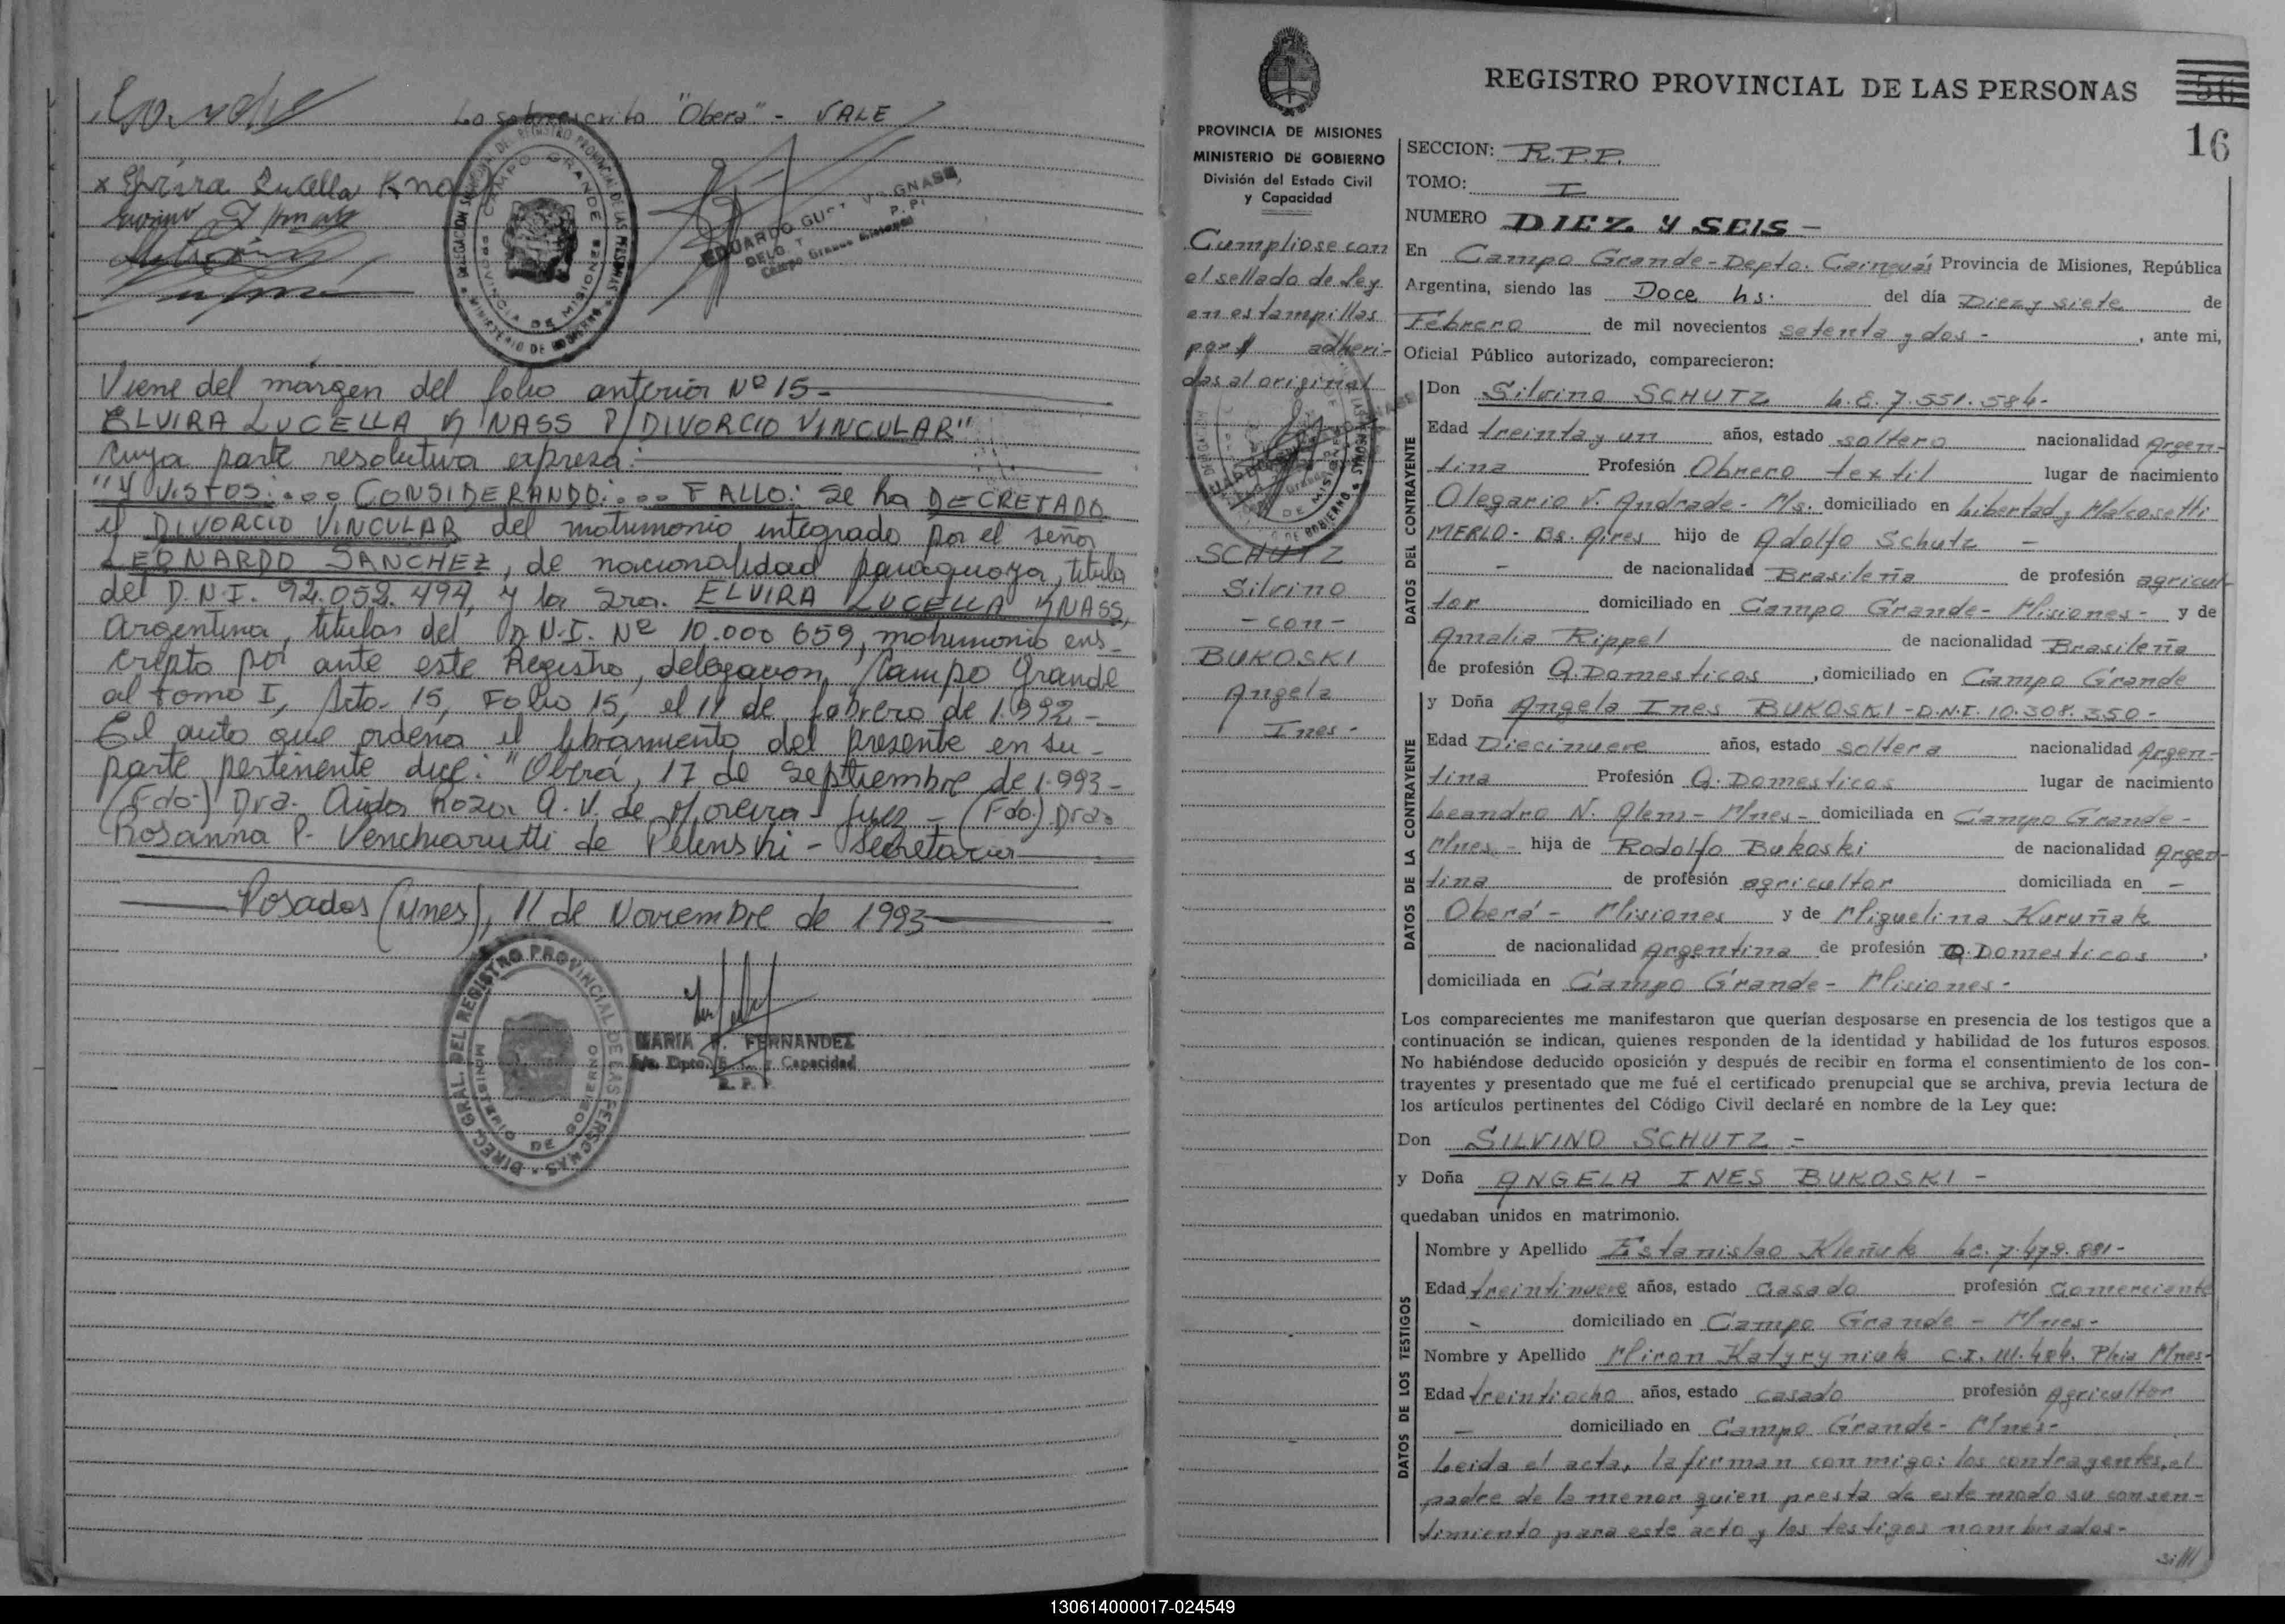 Lo sobrescrito "Oberá" - VALE
x Elvira Lucella Knass
DELEGACION SECCIONAL DEL REGISTRO PROVINCIAL DE LAS PERSONAS
CAMPO GRANDE
PROVINCIA DE MISIONES
MINISTERIO DE GOBIERNO
EDUARDO GUST
Campo Grande Misiones
Viene del márgen del folio anterior Nº 15-
ELVIRA LUCELLA KNASS P/DIVORCIO VINCULAR"
cuya parte resolutiva expresa:
"Y VISTOS:... CONSIDERANDO:... FALLO: Se ha DECRETADO
el DIVORCIO VINCULAR del matrimonio integrado por el señor
LEONARDO SANCHEZ, de nacionalidad paraguaya, titular
del D.N.I. 92.052.494, y la Sra. ELVIRA LUCELLA KNASS,
Argentina, titular del D.N.I. Nº 10.000 659, matrimonio ins-
cripto por ante este Registro, delegacion Campo Grande
al tomo I, Acta 15, Folio 15, el 11 de febrero de 1.992-
El auto que ordena el libramiento del presente en su-
parte pertinente dice: "Oberá, 17 de Septiembre de 1.993-
(Fdo-) Dra. Aida Rosa A. V. de Moreira - Juez - (Fdo.) Dra.
Rosanna P. Venchiarutti de Pelenski - Secretaria
Posadas (Mnes), 11 de Noviembre de 1993
DIREC. GRAL. DEL REGISTRO PROVINCIAL DE LAS PERSONAS
MINISTERIO DE GOBIERNO
MARIA FERNANDEZ
Capacidad
R. P. P.
PROVINCIA DE MISIONES
MINISTERIO DE GOBIERNO
División del Estado Civil
y Capacidad
Cumpliose con
el sellado de Ley
en estampillas
por $ adheri-
das al original
SCHUTZ
Silvino
- con -
BUKOSKI
Angela
Ines -
REGISTRO PROVINCIAL DE LAS PERSONAS
56
16
SECCION: R.P.P.
TOMO: I
NUMERO DIEZ Y SEIS -
En Campo Grande - Depto. Cainguás Provincia de Misiones, República
Argentina, siendo las Doce hs. del día Diez y siete de
Febrero de mil novecientos setenta y dos - , ante mi,
Oficial Público autorizado, comparecieron:
DATOS DEL CONTRAYENTE
Don Silvino SCHUTZ L.E. 7.551.584-
Edad treinta y un años, estado soltero nacionalidad Argen-
tina Profesión Obrero textil lugar de nacimiento
Olegario V. Andrade - Ms. domiciliado en Libertad y Malcosetti
MERLO - Bs. Aires hijo de Adolfo Schutz -
- de nacionalidad Brasileña de profesión agricul-
tor domiciliado en Campo Grande - Misiones - y de
Amalia Rippel de nacionalidad Brasileña
de profesión Q. Domesticos , domiciliado en Campo Grande
DATOS DE LA CONTRAYENTE
y Doña Angela Ines BUKOSKI - D.N.I. 10.308.350-
Edad Diecinueve años, estado soltera nacionalidad Argen-
tina Profesión Q. Domesticos lugar de nacimiento
Leandro N. Alem - Mnes - domiciliada en Campo Grande -
Mnes - hija de Rodolfo Bukoski de nacionalidad Argen-
tina de profesión agricultor domiciliada en -
Oberá - Misiones y de Miguelina Kuruñak
de nacionalidad Argentina de profesión Q. Domesticos ,
domiciliada en Campo Grande - Misiones -
Los comparecientes me manifestaron que querían desposarse en presencia de los testigos que a
continuación se indican, quienes responden de la identidad y habilidad de los futuros esposos.
No habiéndose deducido oposición y después de recibir en forma el consentimiento de los con-
trayentes y presentado que me fué el certificado prenupcial que se archiva, previa lectura de
los artículos pertinentes del Código Civil declaré en nombre de la Ley que:
Don SILVINO SCHUTZ -
y Doña ANGELA INES BUKOSKI -
quedaban unidos en matrimonio.
DATOS DE LOS TESTIGOS
Nombre y Apellido Estanislao Kleñuk L.E. 7.479.891-
Edad treintinueve años, estado Casado profesión Comerciante
- domiciliado en Campo Grande - Mnes -
Nombre y Apellido Miron Katyryniuk C.I. 111.484. Pcia Mnes-
Edad treintiocho años, estado casado profesión Agricultor
- domiciliado en Campo Grande - Mnes -
Leida el acta, la firman conmigo: los contrayentes, el
padre de la menor quien presta de este modo su consen-
timiento para este acto y los testigos nombrados-
130614000017-024549